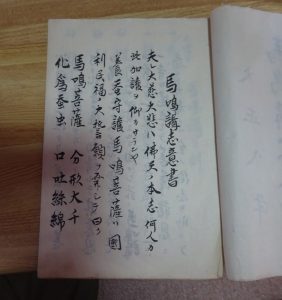 馬鳴講志意書
夫レ大慈大悲ハ佛天ノ本志何人カ
此加護ヲ仰カサランヤ
養蚕守護馬鳴菩薩ハ國
利民福ノ大誓願ヲ発シテ曰ク
馬鳴菩薩 分形大千
化爲蚕虫 口吐絲綿